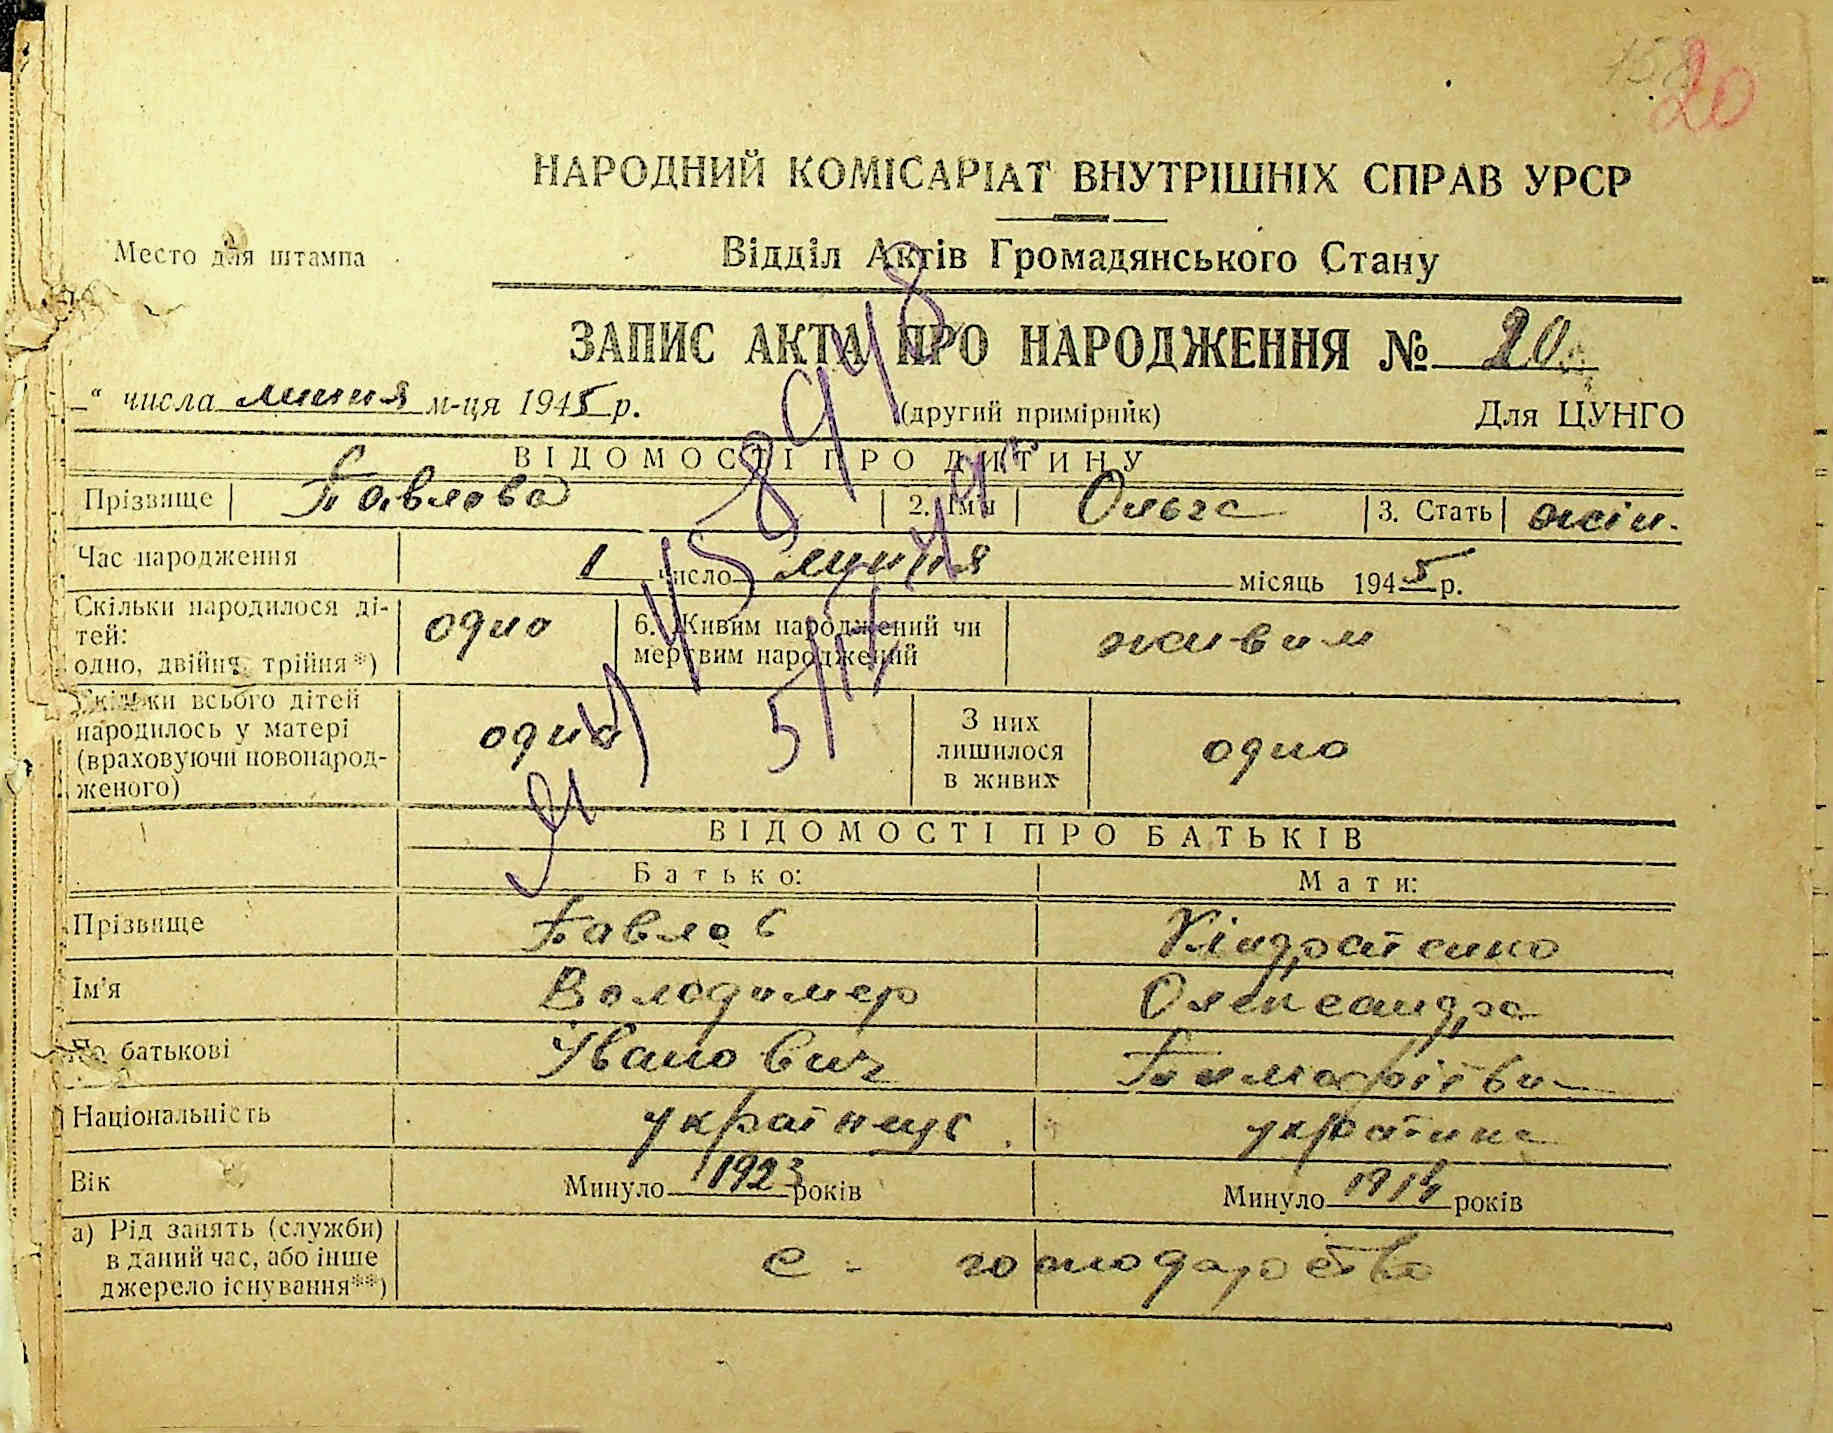 158
20
НАРОДНИЙ КОМІСАРІАТ ВНУТРІШНІХ СПРАВ УРСР
Место для штампа
Відділ Актів Громадянського Стану
ЗАПИС АКТА ПРО НАРОДЖЕННЯ № 20
" числа липня м-ця 1945 р.
(другий примірник)
Для ЦУНГО
ВІДОМОСТІ ПРО ДИТИНУ
Прізвище Павлова 2. Ім'я Ольга 3. Стать жін.
Час народження 1 число липня місяць 1945 р.
Скільки народилося ді-
тей:
одно, двійня, трійня*)
одно
6. Живим народжений чи
мертвим народжений
живим
Скільки всього дітей
народилось у матері
(враховуючи новонарод-
женого)
одно
З них
лишилося
в живих
одно
ВІДОМОСТІ ПРО БАТЬКІВ
Батько: Мати:
Прізвище Павлов Кіндратенко
Ім'я Володимер Олександра
По батькові Іванович
Національність українець українка
Вік Минуло 1923 років Минуло 1914 років
а) Рід занять (служби)
в даний час, або інше
джерело існування**)
с - господарство